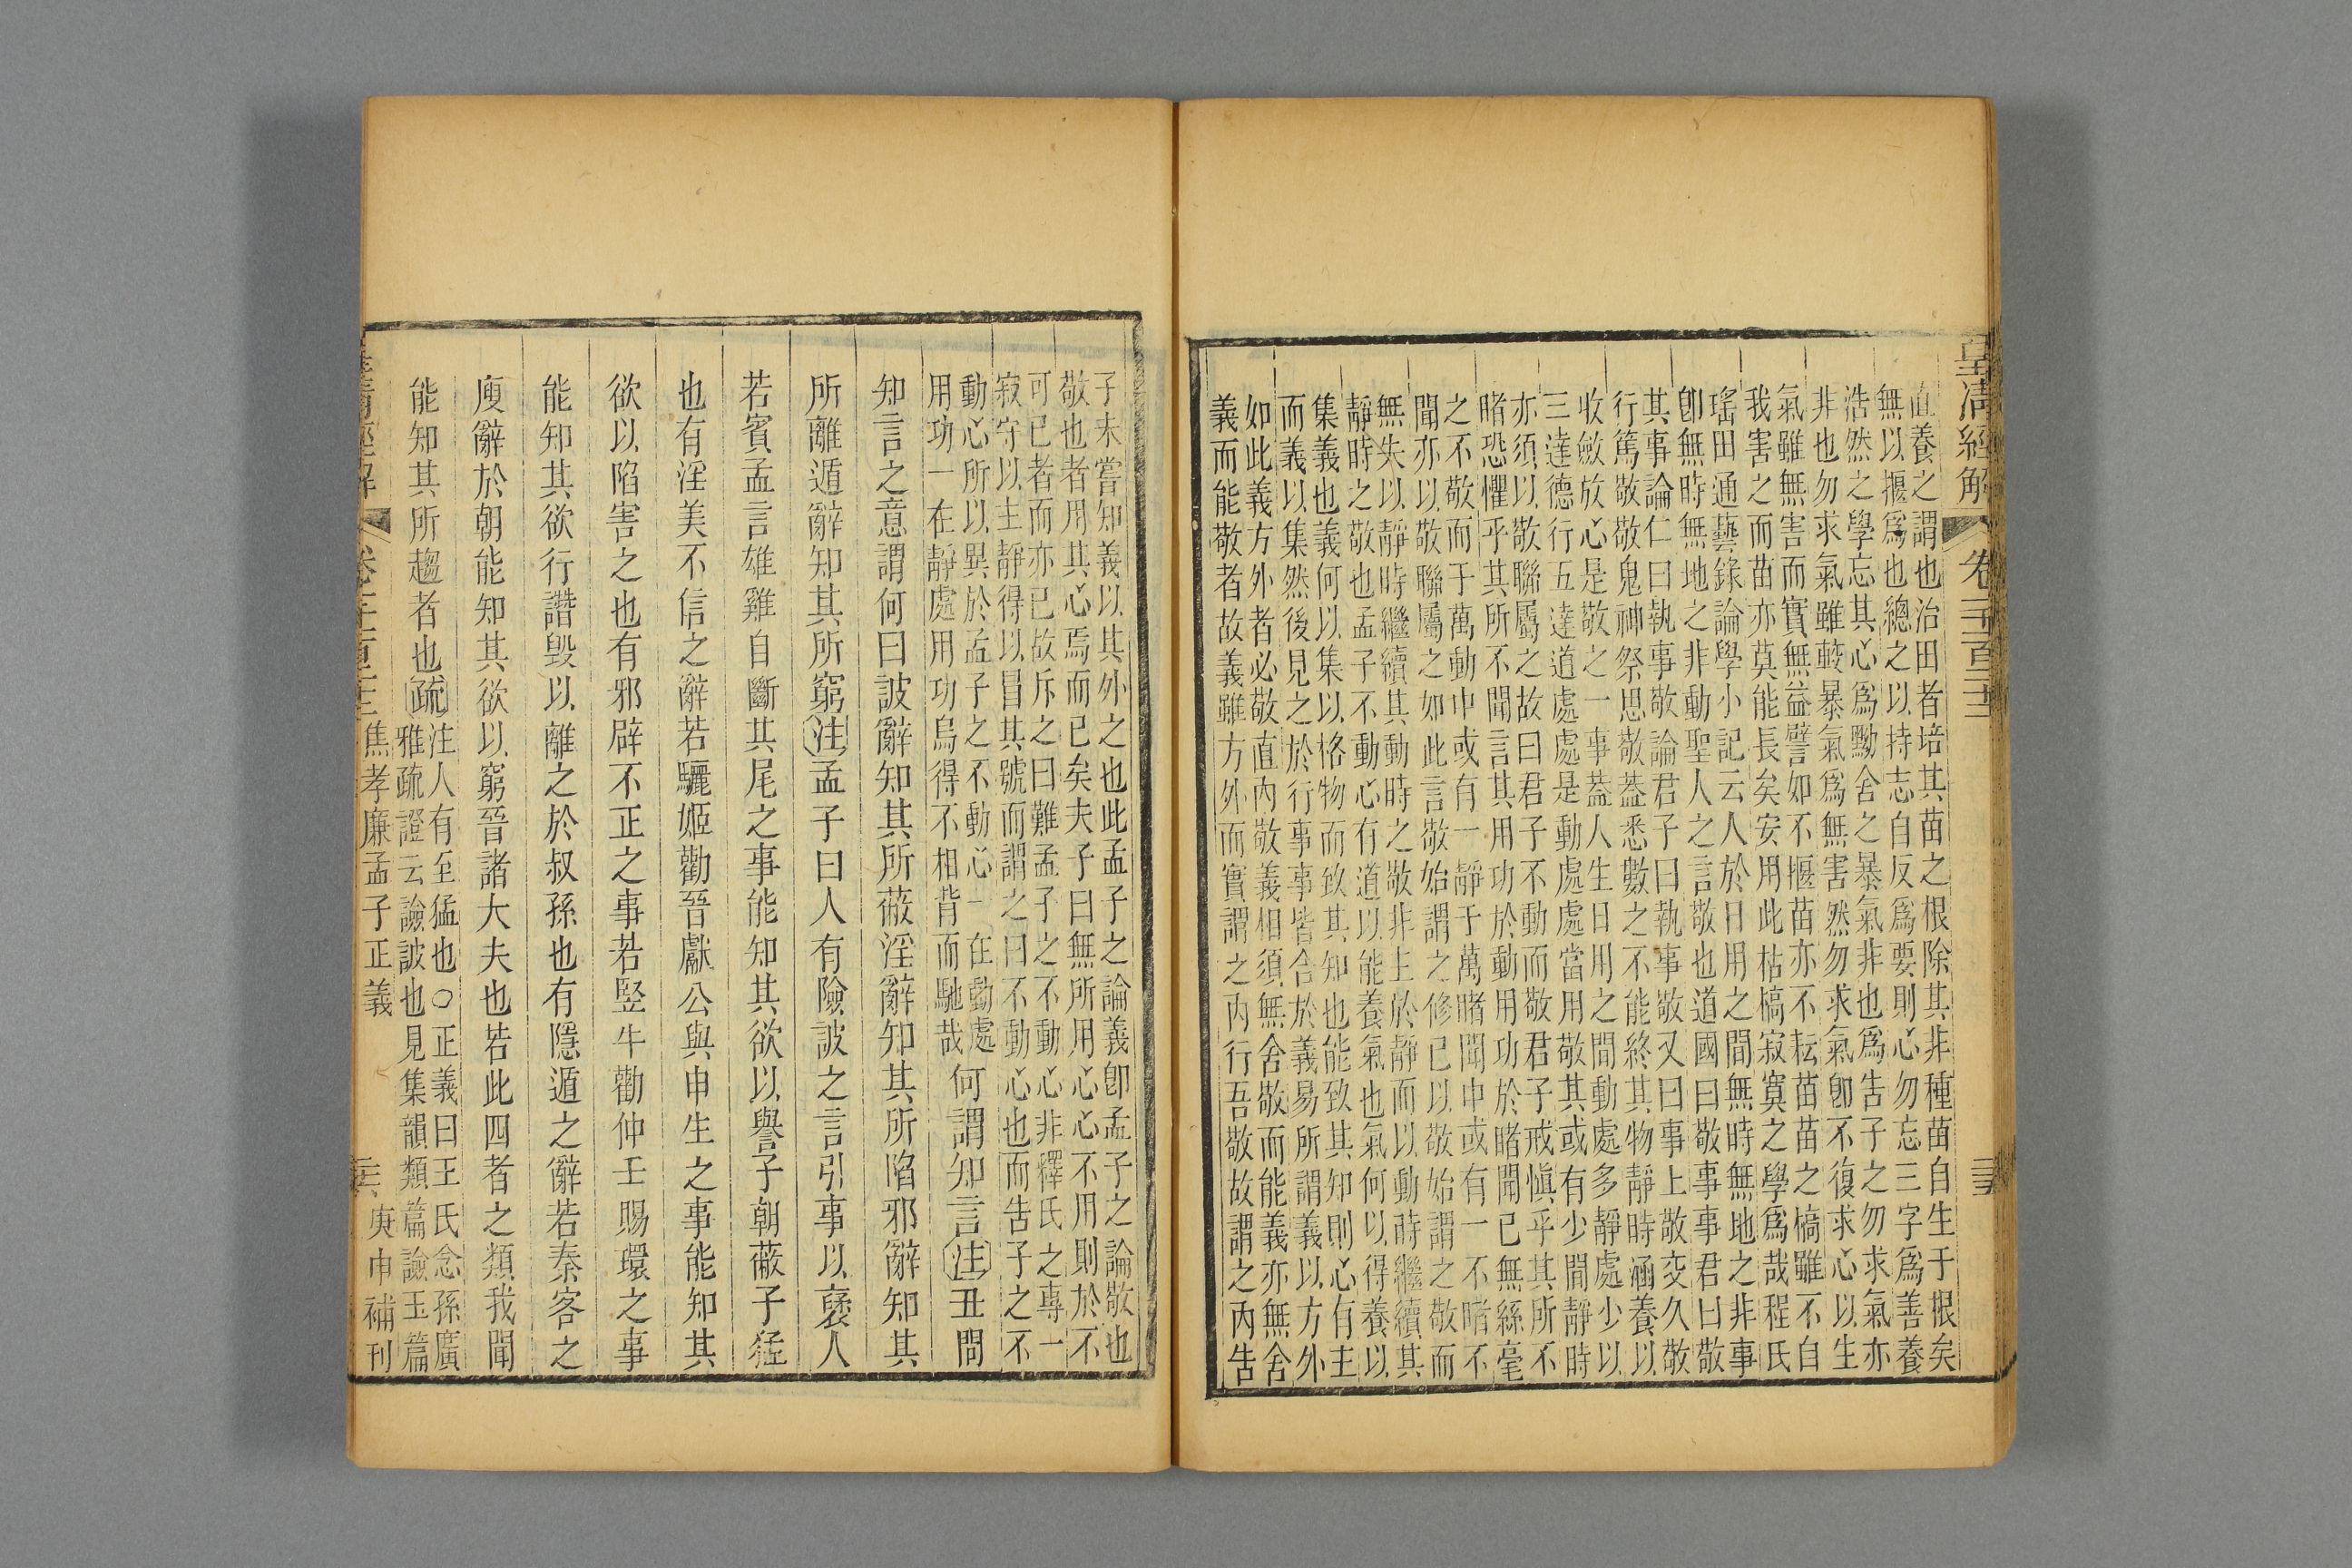 皇清經解
卷一千一百二十三
直養之謂也治田者培其苗之根除其非種苗自生于根矣
無以揠爲也總之以持志自反爲要則心勿忘三字爲善養
浩然之學忘其心爲黝舍之暴氣非也爲告子之勿求氣亦
非也勿求氣雖較暴氣爲無害然勿求氣卽不復求心以生
氣雖無害而實無益譬如不揠苗亦不耘苗苗之槁雖不自
我害之而苗亦莫能長矣安用此枯槁寂寞之學爲哉程氏
瑤田通藝錄論學小記云人於日用之間無時無地之非事
卽無時無地之非動聖人之言敬也道國曰敬事事君曰敬
其事論仁曰執事敬論君子曰執事敬又曰事上敬交久敬
行篤敬敬鬼神祭思敬葢悉數之不能終其物靜時涵養以
收斂放心是敬之一事葢人生日用之間動處多靜處少以
三達德行五達道處處是動處處當用敬其或有少間靜時
亦須以敬聯屬之故曰君子不動而敬君子戒愼乎其所不
睹恐懼乎其所不聞言其用功於動用功於睹聞已無絲毫
之不敬而于萬動中或有一靜于萬睹聞中或有一不睹不
聞亦以敬聯屬之如此言敬始謂之修已以敬始謂之敬而
無失以靜時繼續其動時之敬非主於靜而以動時繼續其
靜時之敬也孟子不動心有道以能養氣也氣何以得養以
集義也義何以集以格物而致其知也能致其知則心有主
而義以集然後見之於行事事皆合於義易所謂義以方外
如此義方外者必敬直內敬義相須無舍敬而能義亦無舍
義而能敬者故義雖方外而實謂之內行吾敬故謂之內告
子未嘗知義以其外之也此孟子之論義卽孟子之論敬也
敬也者用其心焉而已矣夫子曰無所用心心不用則於不
可已者而亦已故斥之曰難孟子之不動心非釋氏之專一
寂守以主靜得以冒其號而謂之曰不動心也而告子之不
動心所以異於孟子之不動心一在動處
用功一在靜處用功烏得不相背而馳哉
何謂知言注丑問
知言之意謂何曰詖辭知其所蔽淫辭知其所陷邪辭知其
所離遁辭知其所窮注孟子曰人有險詖之言引事以襃人
若賓孟言雄雞自斷其尾之事能知其欲以譽子朝蔽子猛
也有淫美不信之辭若驪姬勸晉獻公與申生之事能知其
欲以陷害之也有邪辟不正之事若竪牛勸仲壬賜環之事
能知其欲行譖毀以離之於叔孫也有隱遁之辭若秦客之
廋辭於朝能知其欲以窮晉諸大夫也若此四者之類我聞
能知其所趨者也疏
注人有至猛也○正義曰王氏念孫廣
雅疏證云譣詖也見集韻類篇譣玉篇
皇清經解
卷一千一百二十三
焦孝廉孟子正義
庚申補刊